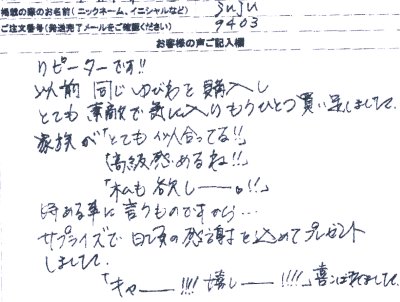 掲載の際のお名前(ニックネーム、イニシャルなど) suju
ご注文番号(発送完了メールをご確認ください) 9403
お客様の声ご記入欄
リピーターです!!
以前 同じゆびわを購入し
とても素敵で気に入りもうひとつ買い足しました。
家族が「とても似合ってる!!」
「高級感あるね!!」
「私も欲しー。!!」
時ある事に言うものですから…
サプライズで日頃の感謝を込めてプレゼント
しました。
「キャー!!!! 嬉しー!!!!」喜ばれました。